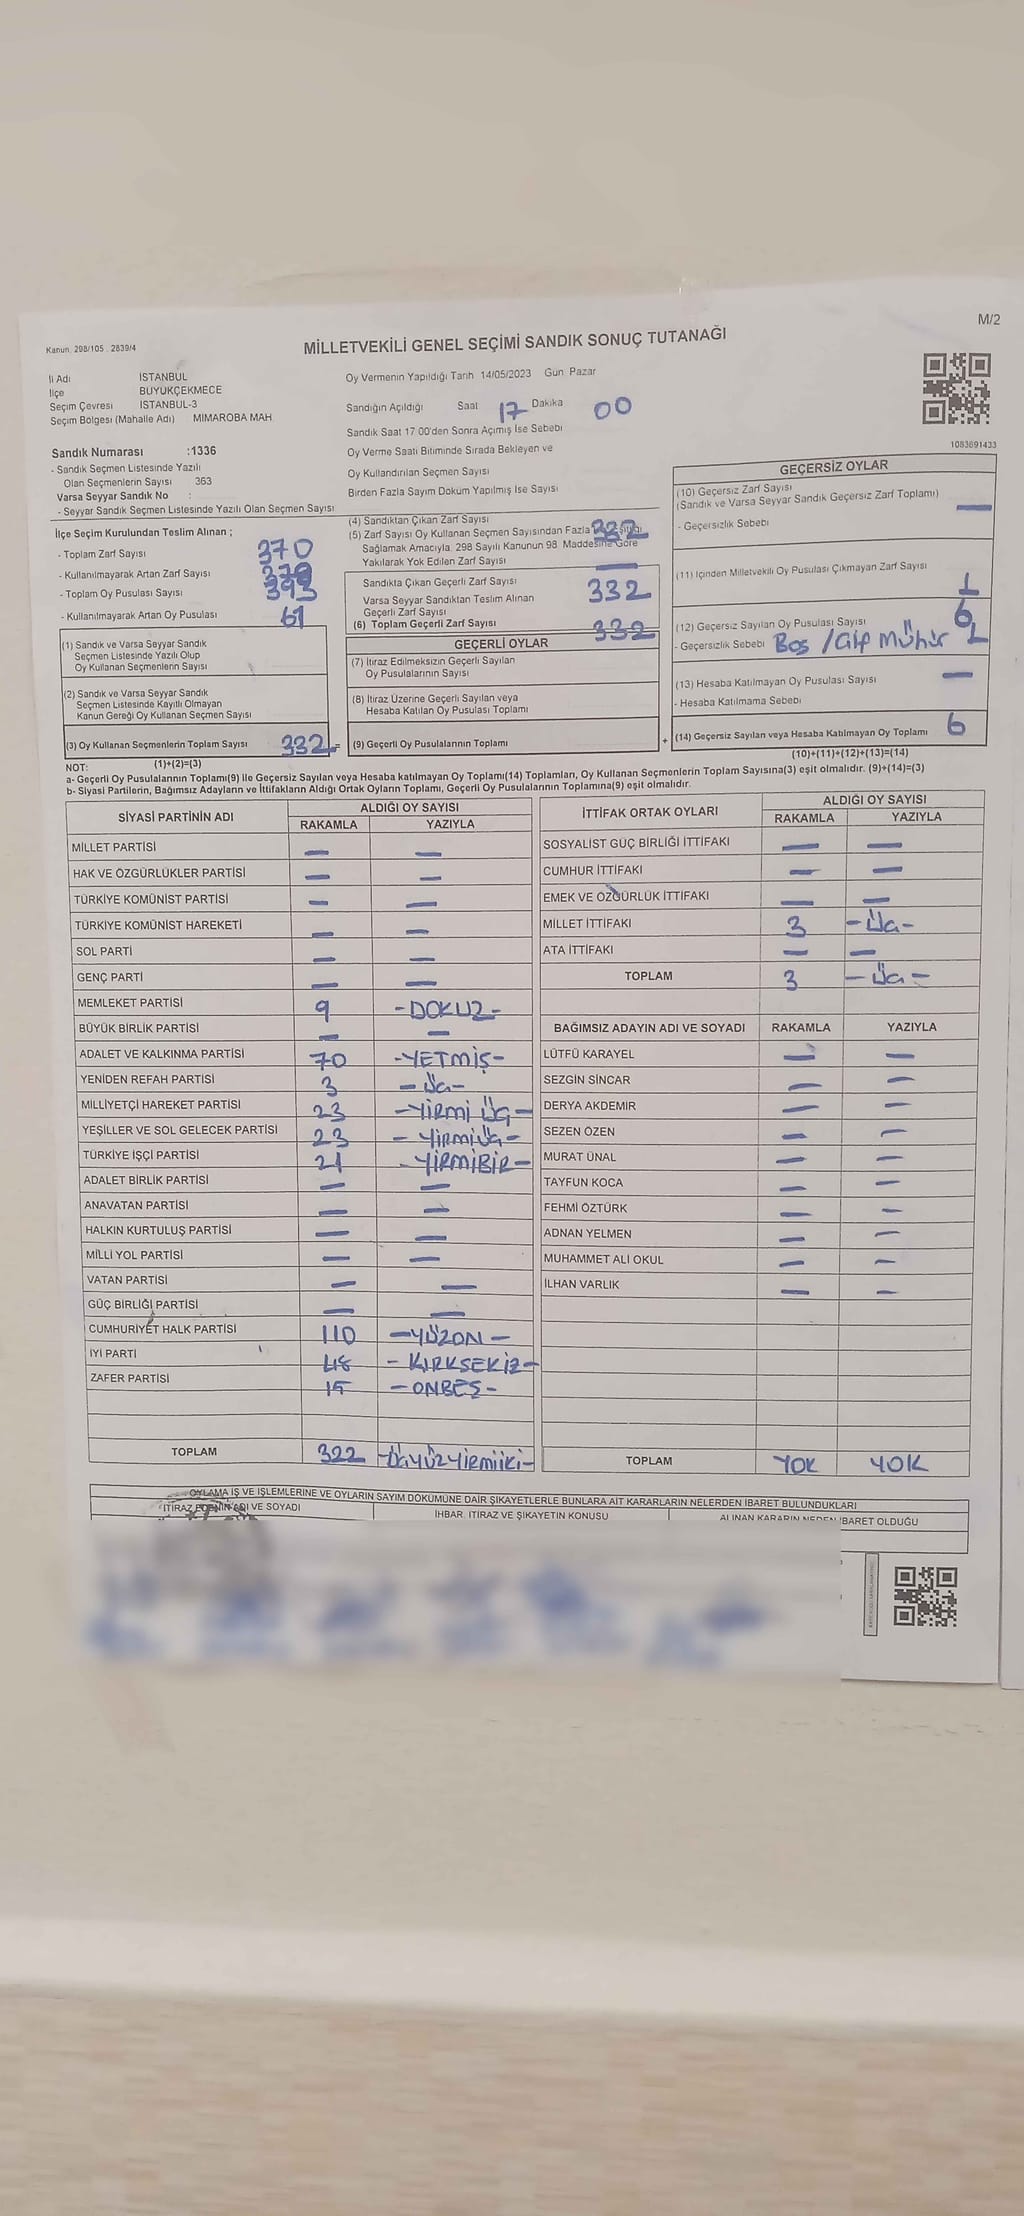 M/2
Kanun. 298/105 . 2839/4
MİLLETVEKİLİ GENEL SEÇİMİ SANDIK SONUÇ TUTANAĞI
İl Adı İSTANBUL
İlçe BÜYÜKÇEKMECE
Seçim Çevresi İSTANBUL-3
Seçim Bölgesi (Mahalle Adı) MİMAROBA MAH
Oy Vermenin Yapıldığı Tarih 14/05/2023 Gün. Pazar
Sandığın Açıldığı Saat 17 Dakika 00
Sandık Saat 17 00'den Sonra Açımış İse Sebebi
Oy Verme Saati Bitiminde Sırada Bekleyen ve
Oy Kullandırılan Seçmen Sayısı
Birden Fazla Sayım Döküm Yapılmış İse Sayısı
1083691433
Sandık Numarası :1336
- Sandık Seçmen Listesinde Yazılı
Olan Seçmenlerin Sayısı 363
Varsa Seyyar Sandık No :
- Seyyar Sandık Seçmen Listesinde Yazılı Olan Seçmen Sayısı
İlçe Seçim Kurulundan Teslim Alınan ;
- Toplam Zarf Sayısı 370
- Kullanılmayarak Artan Zarf Sayısı
- Toplam Oy Pusulası Sayısı 393
- Kullanılmayarak Artan Oy Pusulası 61
(1) Sandık ve Varsa Seyyar Sandık
Seçmen Listesinde Yazılı Olup
Oy Kullanan Seçmenlerin Sayısı
(2) Sandık ve Varsa Seyyar Sandık
Seçmen Listesinde Kayıtlı Olmayan
Kanun Gereği Oy Kullanan Seçmen Sayısı
(3) Oy Kullanan Seçmenlerin Toplam Sayısı 332 =
(4) Sandıktan Çıkan Zarf Sayısı 332
(5) Zarf Sayısı Oy Kullanan Seçmen Sayısından Fazla
Sağlamak Amacıyla, 298 Sayılı Kanunun 98 Maddesine Göre
Yakılarak Yok Edilen Zarf Sayısı —
Sandıkta Çıkan Geçerli Zarf Sayısı 332
Varsa Seyyar Sandıktan Teslim Alınan
Geçerli Zarf Sayısı
(6) Toplam Geçerli Zarf Sayısı 332
GEÇERLİ OYLAR
(7) İtiraz Edilmeksizin Geçerli Sayılan
Oy Pusulalarının Sayısı
(8) İtiraz Üzerine Geçerli Sayılan veya
Hesaba Katılan Oy Pusulası Toplamı
(9) Geçerli Oy Pusulalarının Toplamı +
GEÇERSİZ OYLAR
(10) Geçersiz Zarf Sayısı
(Sandık ve Varsa Seyyar Sandık Geçersiz Zarf Toplamı) —
- Geçersizlik Sebebi
(11) İçinden Milletvekili Oy Pusulası Çıkmayan Zarf Sayısı 1
(12) Geçersiz Sayılan Oy Pusulası Sayısı 6
- Geçersizlik Sebebi Boş / Çift Mühür
(13) Hesaba Katılmayan Oy Pusulası Sayısı —
- Hesaba Katılmama Sebebi
(14) Geçersiz Sayılan veya Hesaba Katılmayan Oy Toplamı 6
NOT: (1)+(2)=(3)
(10)+(11)+(12)+(13)=(14)
a- Geçerli Oy Pusulalarının Toplamı(9) ile Geçersiz Sayılan veya Hesaba katılmayan Oy Toplamı(14) Toplamları, Oy Kullanan Seçmenlerin Toplam Sayısına(3) eşit olmalıdır. (9)+(14)=(3)
b- Siyasi Partilerin, Bağımsız Adayların ve İttifakların Aldığı Ortak Oyların Toplamı, Geçerli Oy Pusulalarının Toplamına(9) eşit olmalıdır.
SİYASİ PARTİNİN ADI ALDIĞI OY SAYISI
RAKAMLA YAZIYLA
MİLLET PARTİSİ — —
HAK VE ÖZGÜRLÜKLER PARTİSİ — —
TÜRKİYE KOMÜNİST PARTİSİ — —
TÜRKİYE KOMÜNİST HAREKETİ — —
SOL PARTİ — —
GENÇ PARTİ — —
MEMLEKET PARTİSİ 9 -DOKUZ-
BÜYÜK BİRLİK PARTİSİ — —
ADALET VE KALKINMA PARTİSİ 70 -YETMİŞ-
YENİDEN REFAH PARTİSİ 3 -Üç-
MİLLİYETÇİ HAREKET PARTİSİ 23 -YİRMİ ÜÇ-
YEŞİLLER VE SOL GELECEK PARTİSİ 23 -YİRMİÜÇ-
TÜRKİYE İŞÇİ PARTİSİ 21 -YİRMİBİR-
ADALET BİRLİK PARTİSİ — —
ANAVATAN PARTİSİ — —
HALKIN KURTULUŞ PARTİSİ — —
MİLLİ YOL PARTİSİ — —
VATAN PARTİSİ — —
GÜÇ BİRLİĞİ PARTİSİ — —
CUMHURİYET HALK PARTİSİ 110 -YÜZON-
İYİ PARTİ 48 -KIRKSEKİZ-
ZAFER PARTİSİ 15 -ONBEŞ-
TOPLAM 322 -ÜçYÜZYİRMİİKİ-
İTTİFAK ORTAK OYLARI ALDIĞI OY SAYISI
RAKAMLA YAZIYLA
SOSYALİST GÜÇ BİRLİĞİ İTTİFAKI — —
CUMHUR İTTİFAKI — —
EMEK VE ÖZGÜRLÜK İTTİFAKI — —
MİLLET İTTİFAKI 3 -Üç-
ATA İTTİFAKI — —
TOPLAM 3 -Üç-
BAĞIMSIZ ADAYIN ADI VE SOYADI RAKAMLA YAZIYLA
LÜTFÜ KARAYEL — —
SEZGİN SİNCAR — —
DERYA AKDEMİR — —
SEZEN ÖZEN — —
MURAT ÜNAL — —
TAYFUN KOCA — —
FEHMİ ÖZTÜRK — —
ADNAN YELMEN — —
MUHAMMET ALİ OKUL — —
İLHAN VARLIK — —
TOPLAM YOK YOK
OYLAMA İŞ VE İŞLEMLERİNE VE OYLARIN SAYIM DÖKÜMÜNE DAİR ŞİKAYETLERLE BUNLARA AİT KARARLARIN NELERDEN İBARET BULUNDUKLARI
İTİRAZ EDENİN ADI VE SOYADI İHBAR, İTİRAZ VE ŞİKAYETİN KONUSU ALINAN KARARIN NEDEN İBARET OLDUĞU